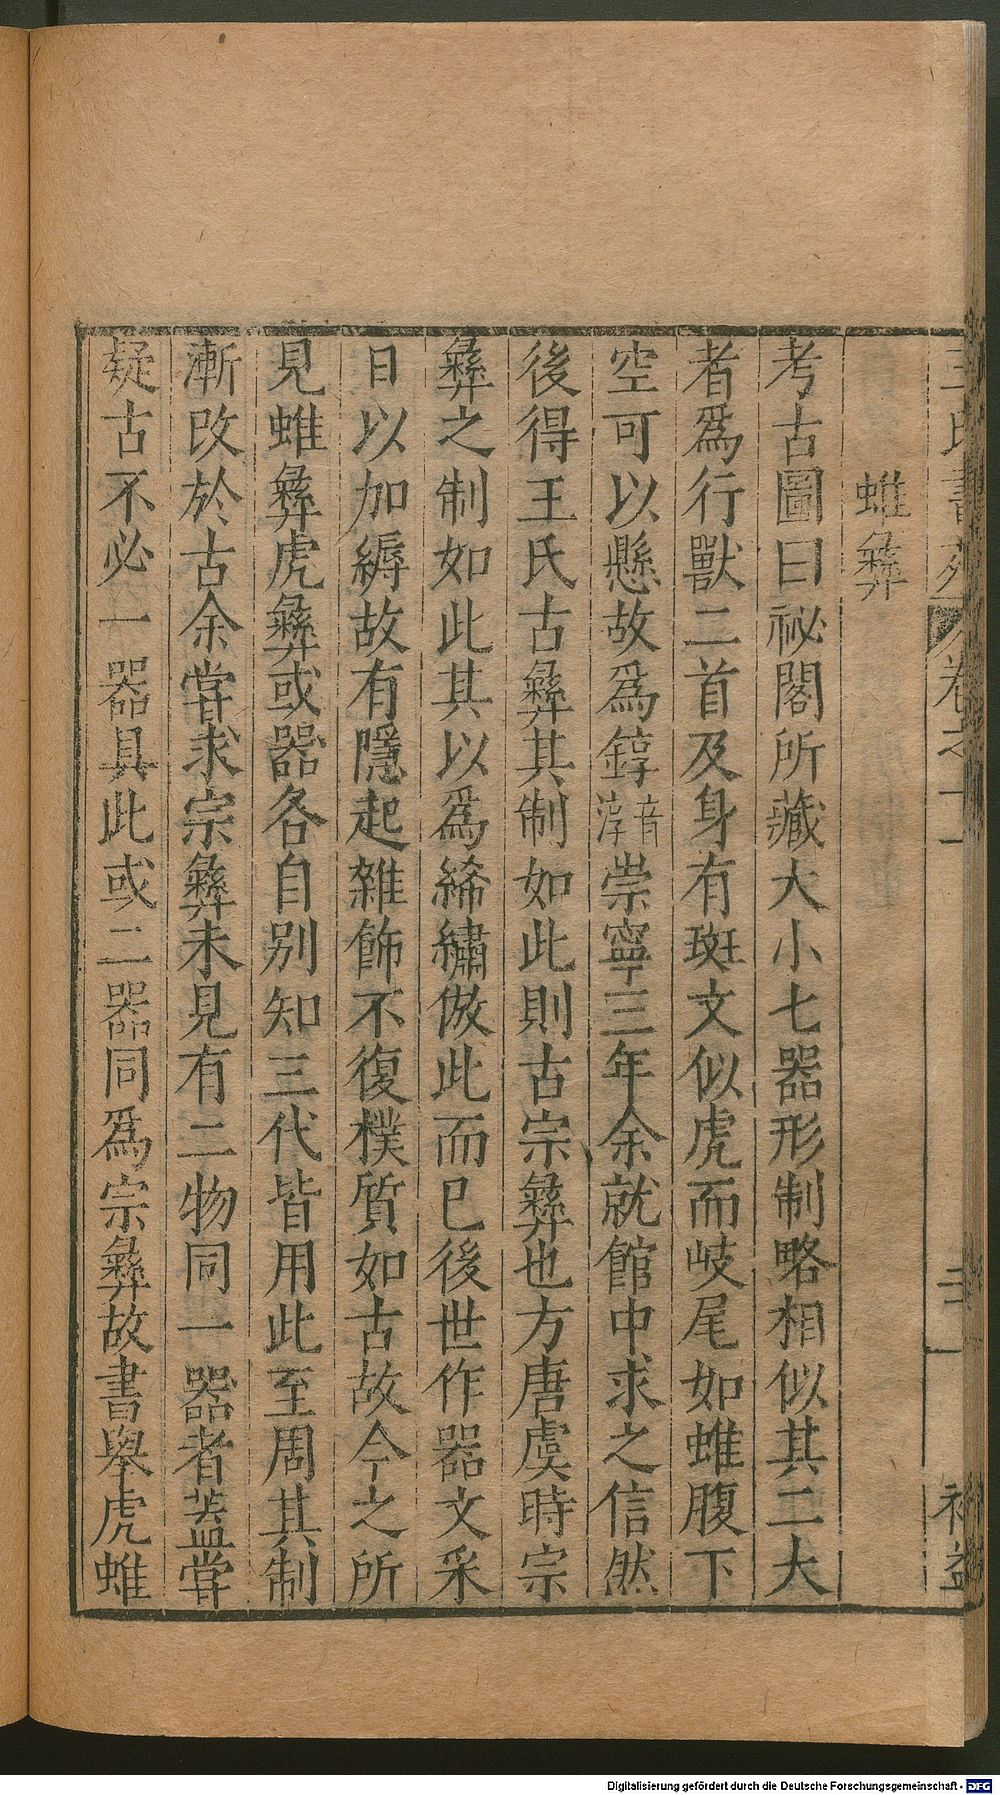 王氏書苑 卷之十一 三 補益
蜼彝
考古圖曰祕閣所藏大小七器形制略相似其二大
者爲行獸二首及身有斑文似虎而岐尾如蜼腹下
空可以懸故爲錞音淳崇寧三年余就館中求之信然
後得王氏古彝其制如此則古宗彝也方唐虞時宗
彝之制如此其以爲絺繡倣此而已後世作器文采
日以加縟故有隱起雜飾不復樸質如古故今之所
見蜼彝虎彝或器各自别知三代皆用此至周其制
漸改於古余嘗求宗彝未見有二物同一器者蓋嘗
疑古不必一器具此或二器同爲宗彝故書舉虎蜼
Digitalisierung gefördert durch die Deutsche Forschungsgemeinschaft - DFG